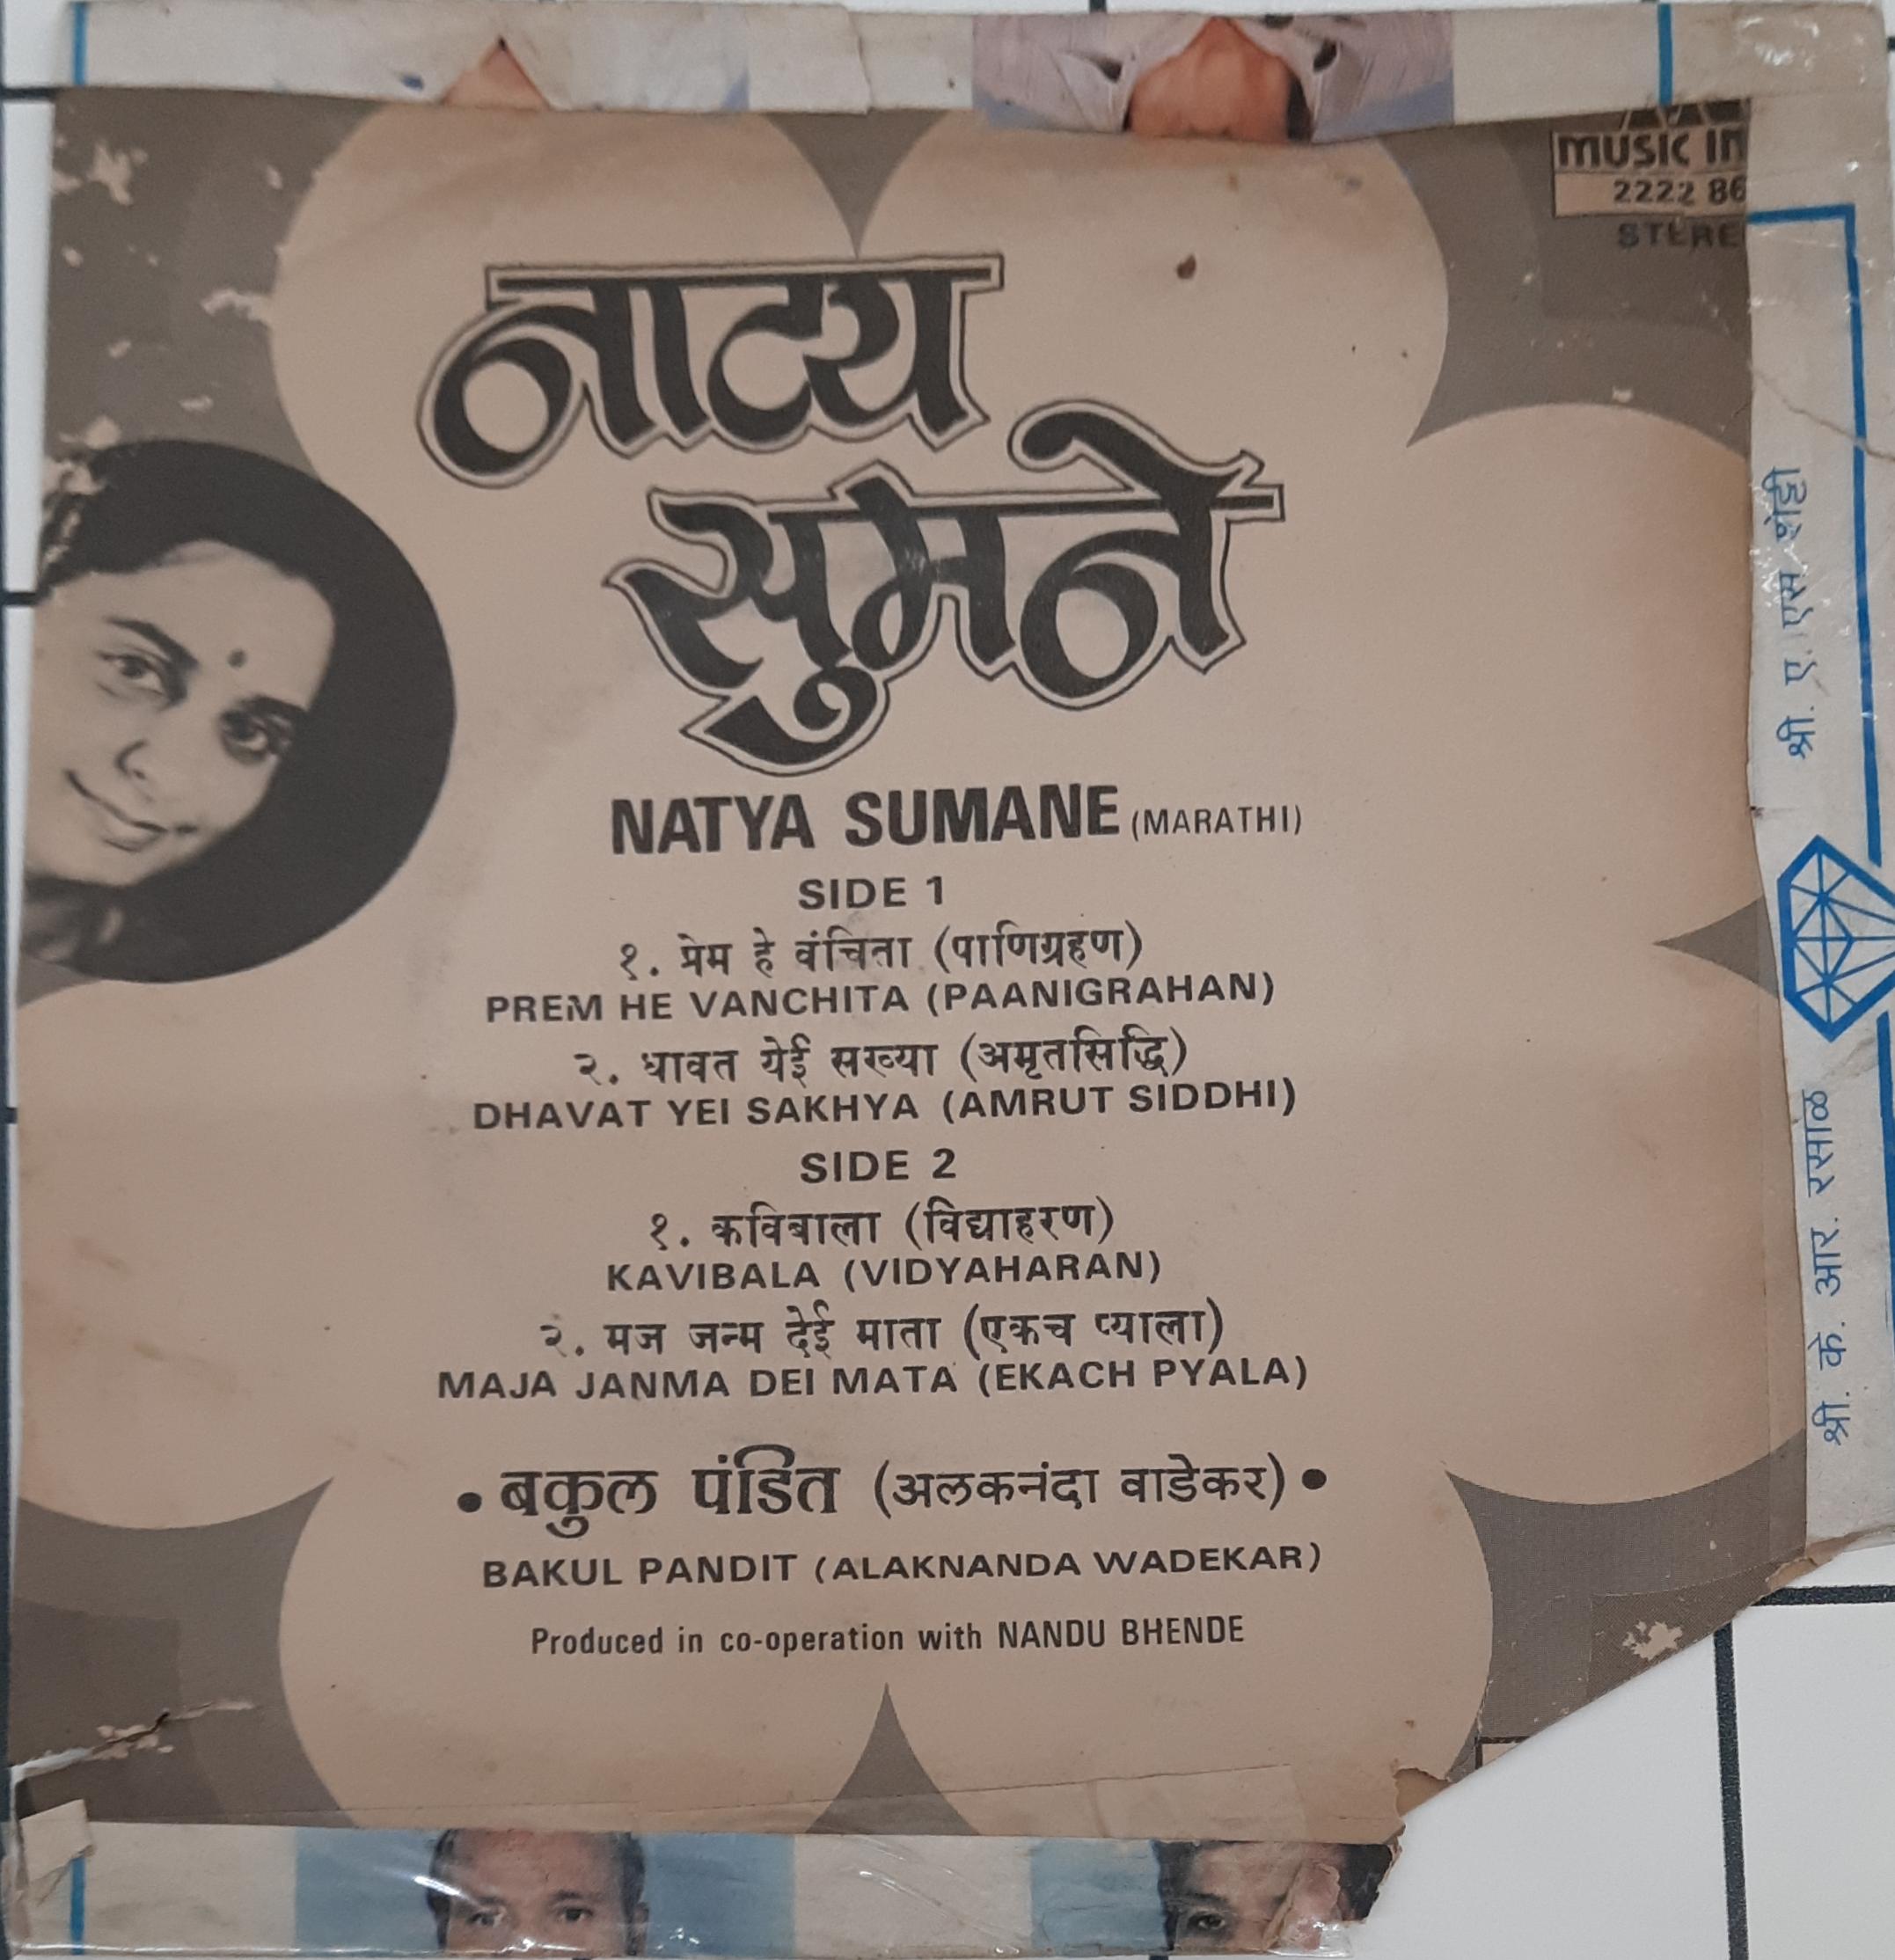 MUSIC IN
2222 86
STERE
नाट्य
सुमने
NATYA SUMANE (MARATHI)
SIDE 1
१. प्रेम हे वंचिता (पाणिग्रहण)
PREM HE VANCHITA (PAANIGRAHAN)
२. धावत येई सख्या (अमृतसिद्धि)
DHAVAT YEI SAKHYA (AMRUT SIDDHI)
SIDE 2
१. कविबाला (विद्याहरण)
KAVIBALA (VIDYAHARAN)
२. मज जन्म देई माता (एकच प्याला)
MAJA JANMA DEI MATA (EKACH PYALA)
• बकुल पंडित (अलकनंदा वाडेकर) •
BAKUL PANDIT (ALAKNANDA WADEKAR)
Produced in co-operation with NANDU BHENDE
श्री. ए. एस. शेट्टी
श्री. के. आर. रसाळ